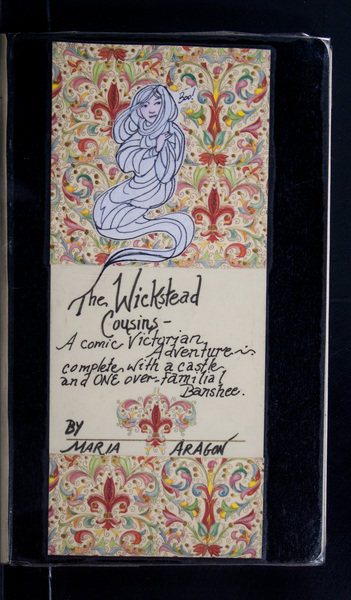 Boo!
The Wickstead
Cousins -
A comic Victorian
Adventure -
complete with a castle
and ONE over-familial
Banshee.
BY
MARIA ARAGON